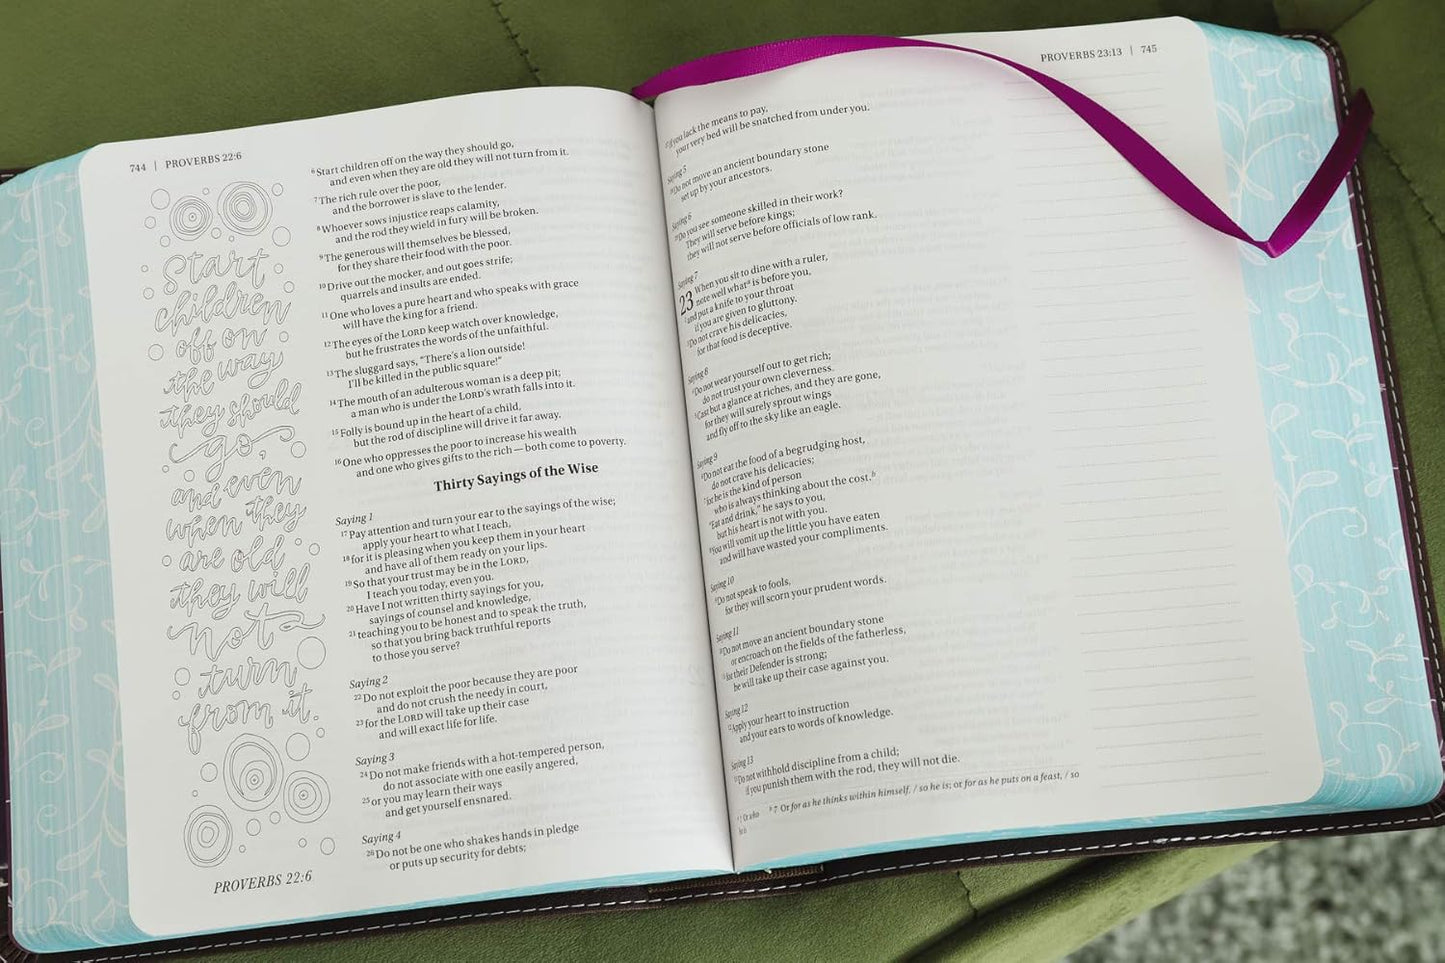 744 | PROVERBS 22:6
Start
children
off on
the way
they should
go,
and even
when they
are old
they will
not
turn
from it.
PROVERBS 22:6
6 Start children off on the way they should go,
and even when they are old they will not turn from it.
7 The rich rule over the poor,
and the borrower is slave to the lender.
8 Whoever sows injustice reaps calamity,
and the rod they wield in fury will be broken.
9 The generous will themselves be blessed,
for they share their food with the poor.
10 Drive out the mocker, and out goes strife;
quarrels and insults are ended.
11 One who loves a pure heart and who speaks with grace
will have the king for a friend.
12 The eyes of the LORD keep watch over knowledge,
but he frustrates the words of the unfaithful.
13 The sluggard says, “There’s a lion outside!
I’ll be killed in the public square!”
14 The mouth of an adulterous woman is a deep pit;
a man who is under the LORD’s wrath falls into it.
15 Folly is bound up in the heart of a child,
but the rod of discipline will drive it far away.
16 One who oppresses the poor to increase his wealth
and one who gives gifts to the rich — both come to poverty.
Thirty Sayings of the Wise
Saying 1
17 Pay attention and turn your ear to the sayings of the wise;
apply your heart to what I teach,
18 for it is pleasing when you keep them in your heart
and have all of them ready on your lips.
19 So that your trust may be in the LORD,
I teach you today, even you.
20 Have I not written thirty sayings for you,
sayings of counsel and knowledge,
21 teaching you to be honest and to speak the truth,
so that you bring back truthful reports
to those you serve?
Saying 2
22 Do not exploit the poor because they are poor
and do not crush the needy in court,
23 for the LORD will take up their case
and will exact life for life.
Saying 3
24 Do not make friends with a hot-tempered person,
do not associate with one easily angered,
25 or you may learn their ways
and get yourself ensnared.
Saying 4
26 Do not be one who shakes hands in pledge
or puts up security for debts;
PROVERBS 23:13 | 745
if you lack the means to pay,
your very bed will be snatched from under you.
Saying 5
Do not move an ancient boundary stone
set up by your ancestors.
Saying 6
Do you see someone skilled in their work?
They will serve before kings;
they will not serve before officials of low rank.
Saying 7
23 When you sit to dine with a ruler,
note well what a is before you,
and put a knife to your throat
if you are given to gluttony.
Do not crave his delicacies,
for that food is deceptive.
Saying 8
Do not wear yourself out to get rich;
do not trust your own cleverness.
Cast but a glance at riches, and they are gone,
for they will surely sprout wings
and fly off to the sky like an eagle.
Saying 9
Do not eat the food of a begrudging host,
do not crave his delicacies;
for he is the kind of person
who is always thinking about the cost. b
“Eat and drink,” he says to you,
but his heart is not with you.
You will vomit up the little you have eaten
and will have wasted your compliments.
Saying 10
Do not speak to fools,
for they will scorn your prudent words.
Saying 11
Do not move an ancient boundary stone
or encroach on the fields of the fatherless,
for their Defender is strong;
he will take up their case against you.
Saying 12
Apply your heart to instruction
and your ears to words of knowledge.
Saying 13
Do not withhold discipline from a child;
if you punish them with the rod, they will not die.
a 1 Or who b 7 Or for as he thinks within himself, / so he is; or for as he puts on a feast, / so
he is